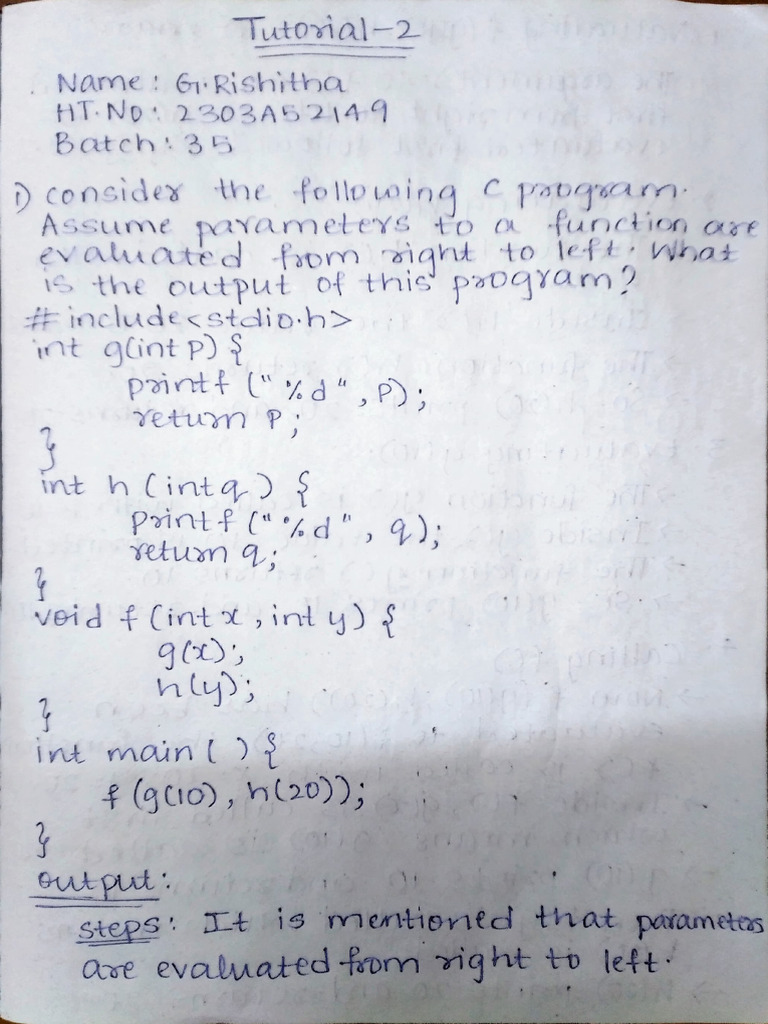 Tutorial-2
Name: G.Rishitha
HT.No: 2303A52149
Batch: 35
1) consider the following C program.
Assume parameters to a function are
evaluated from right to left. What
is the output of this program?
#include<stdio.h>
int g(int p) {
printf ("%d", p);
return p;
}
int h (int q) {
printf ("%d", q);
return q;
}
void f (int x, int y) {
g(x);
h(y);
}
int main ( ) {
f (g(10), h(20));
}
output:
steps: It is mentioned that parameters
are evaluated from right to left.